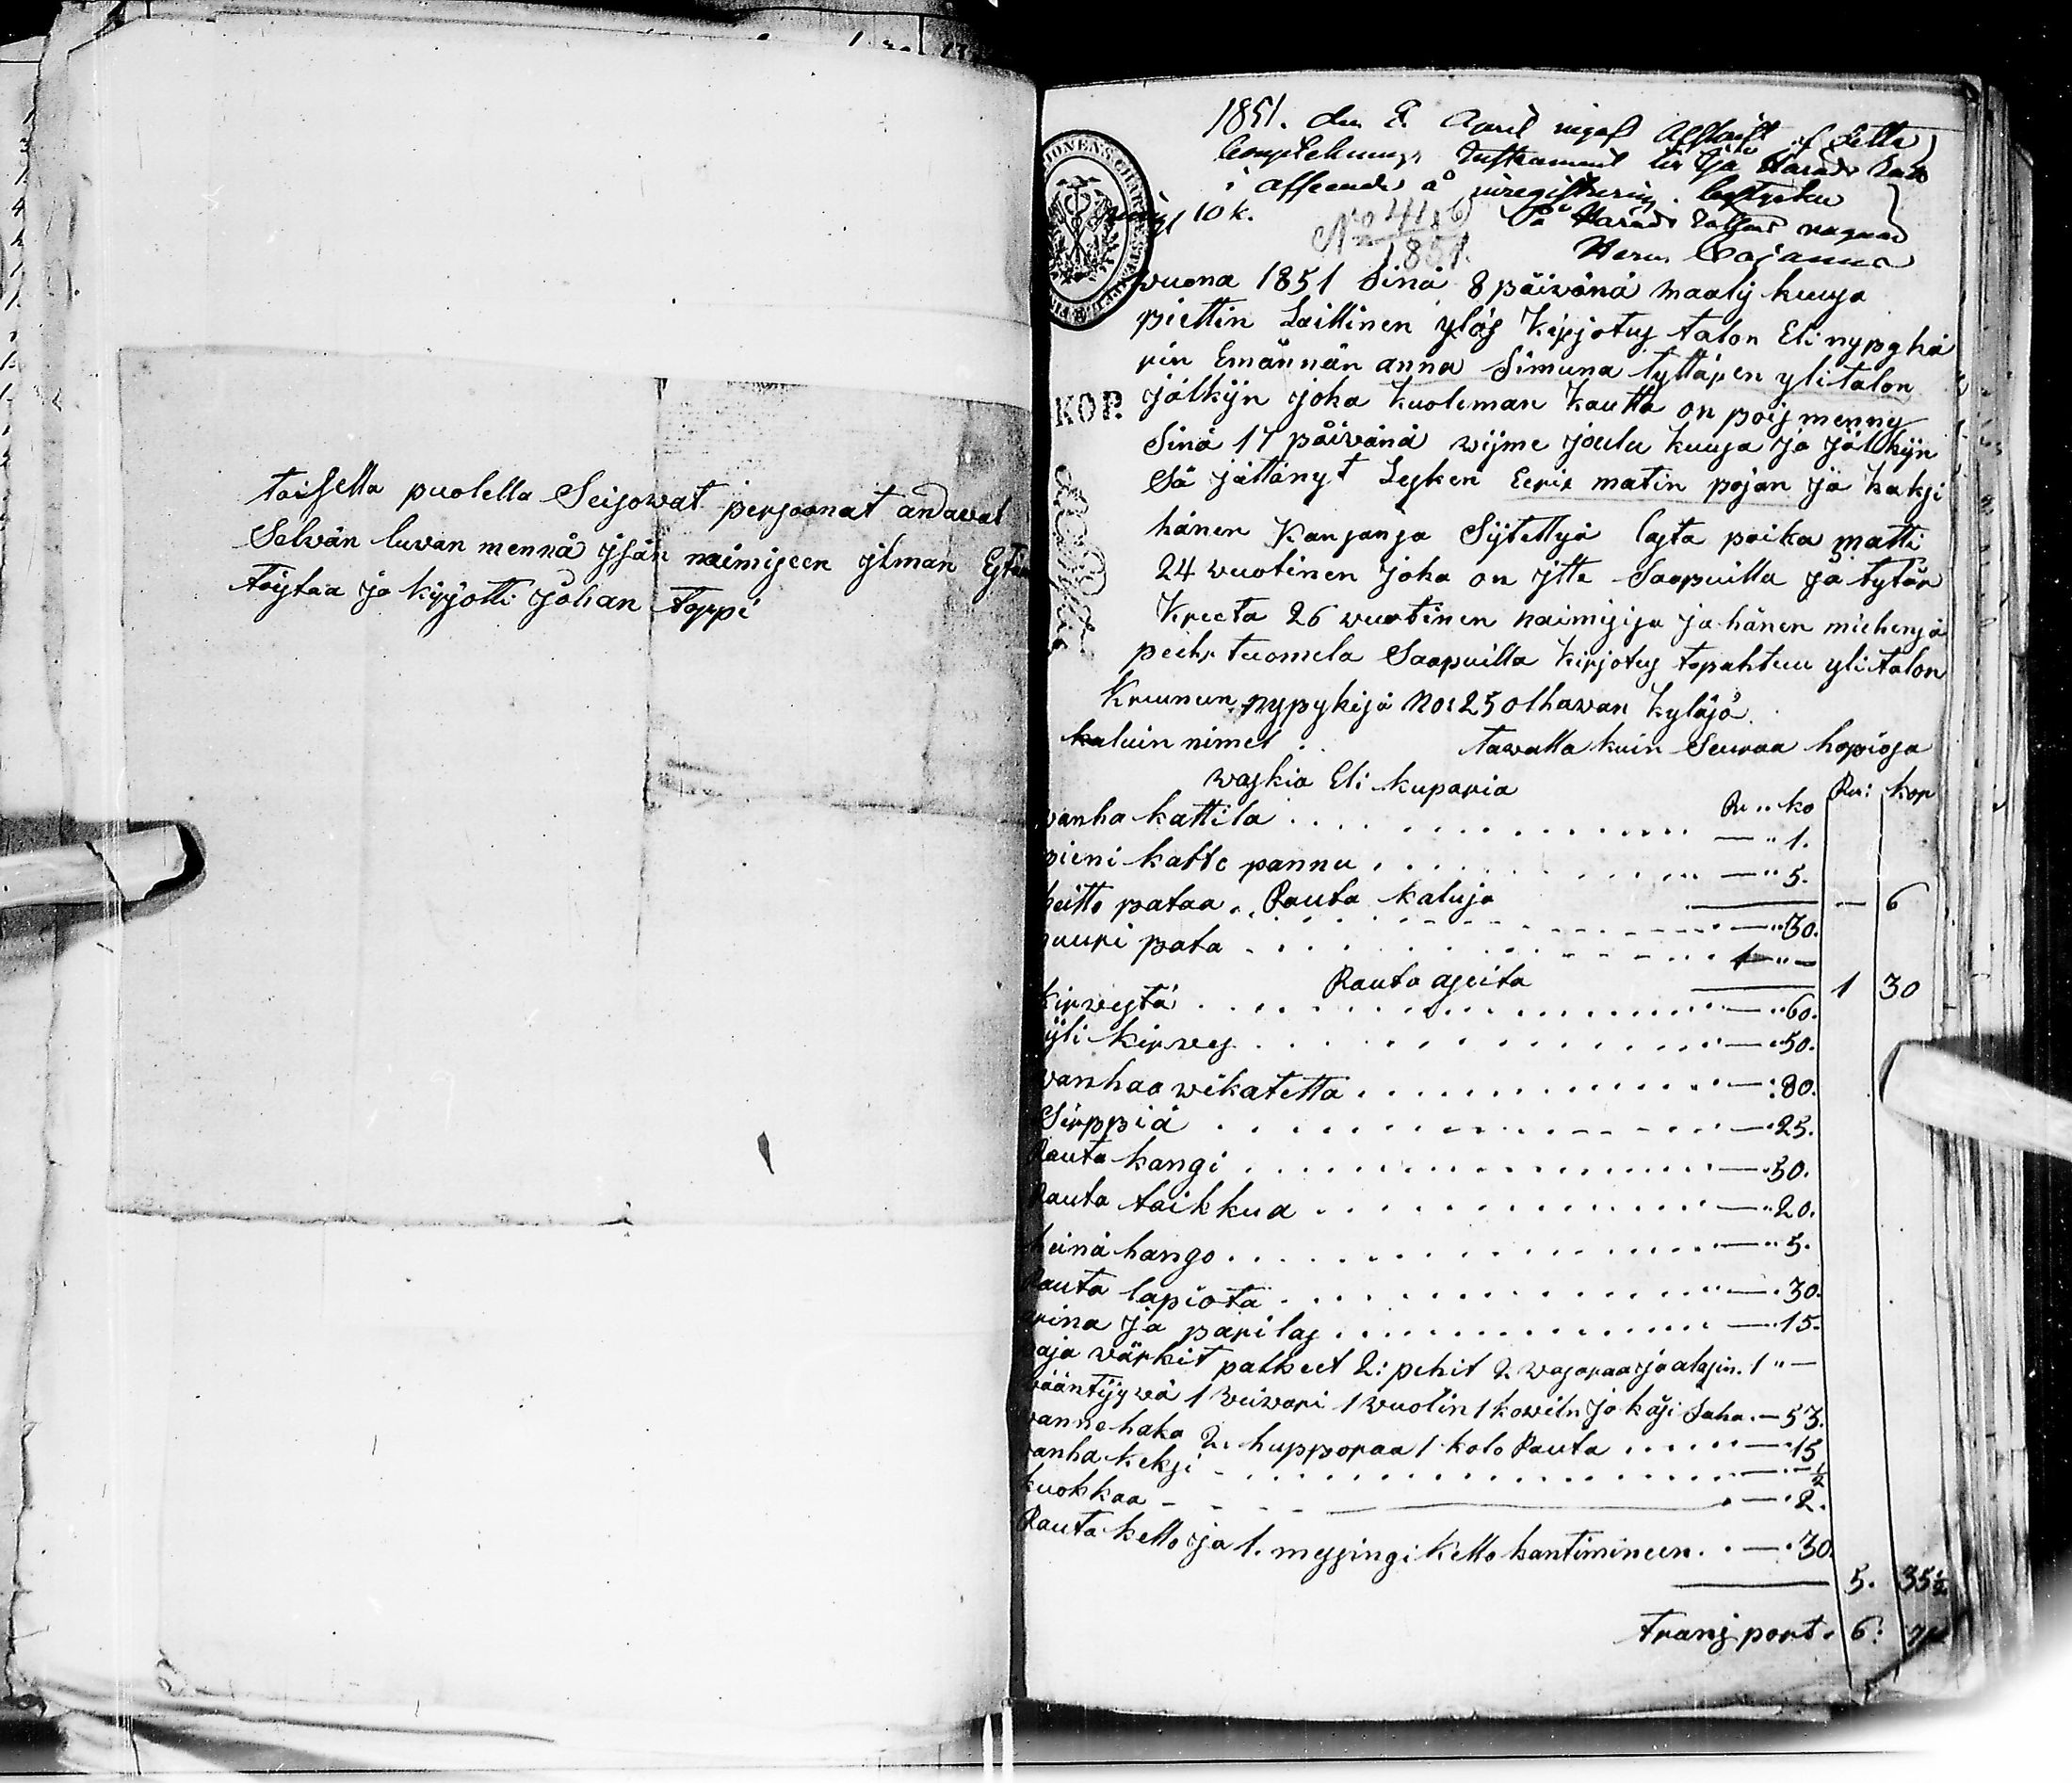 toisella puolella Seisowat persoonat andavat
Selvän luvan mennä jsän naimiseen jlman Esten
töistaa ja kirjotti Johan Toppi
1851. den 8. April ingaf afskrift af detta
boupteknings Instrument
i afseende å inregistrering. betyder
10 k.
På Härads Rättens vägnar
Herm. Cajanus
No 4186
1851.
KOP.
wuona 1851 Sinä 8 päivänä maalis kuusa
piettin Laillinen ylös Kirjotus talon Eli nypyhä
rin Emännän anna Simuna tyttären ylitalon
jälkijn joka Kuoleman Kautta on pois menny
Sinä 17 päivänä wijme joulu kuusa ja jälkijn
Sä jättänyt Lesken Eerik matin pojan ja kaksi
hänen Kansansa Sijtettyä lasta poika matti
24 wuotinen joka on jtte Saapuilla ja tytär
Kreeta 26 wuotinen naimisisa ja hänen miehensä
pechr tuomela Saapuilla Kirjotus tapahtuu ylitalon
Kruunun nypykisä No: 25 olhawan Kyläsä
kaluin nimet . . tawalla kuin Seuraa hopiosa
waskia Eli kuparia Ru: kop
Ru " ko
wanha kattila . . . — " 1.
pieni kaffe pannu . . . — " 5.
— 6
heitto pataa . . Rauta kaluja — " 30.
suuri pata . . . 1 " —
Rauta aseita 1 30
kirwestä . . . — " 60.
pijli kirwes . . . — " 50.
wanhaa wikatetta . . . — " 80.
Sirppiä . . . — " 25.
Rauta kangi . . . — " 30.
Rauta taikkua . . . — " 20.
heinä hango . . . — " 5.
Rauta lapiota . . . — " 30.
arina ja parilas . . . — " 15.
paja wärkit palkeet 2: pihit 2 wasaraa ja alasin. 1 " —
wääntijywä 1 wiiwari 1 wuolin 1 kowiln ja käsi Saha. — 53.
wanne haka 2. hupporaa 1 kolo Rauta . . . — " 15
wanha keksi . . . — " — ½
kuokkaa — . . . — " 2.
Rauta kello ja 1. messingi kello hantimineen. . — " 30.
5. 35½
Transport. 6: 71½